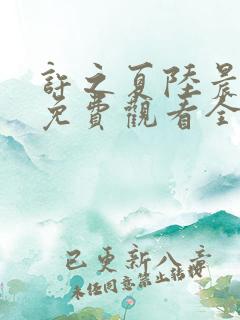 許之夏陸晨
免費觀看全
已更新八章
未经同意禁止转载